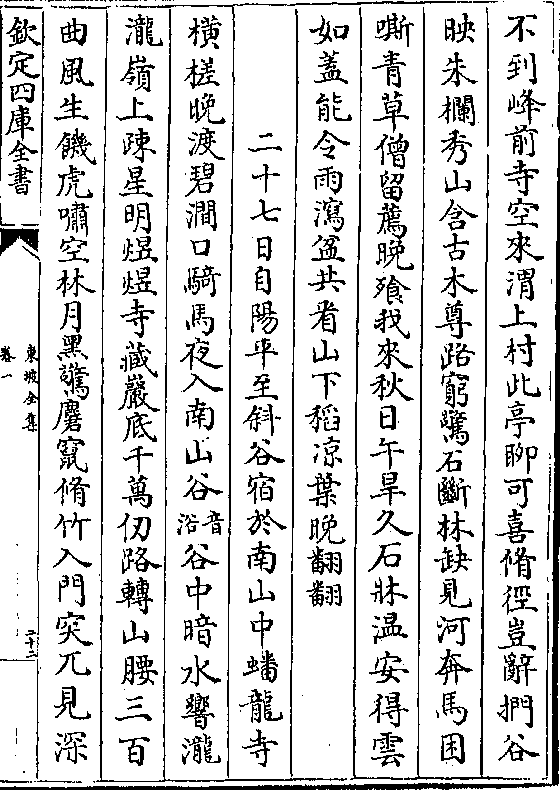 不到峰前寺空來渭上村此亭聊可喜脩徑豈辭捫谷
映朱欄秀山含古木尊路窮驚石斷林缺見河奔馬困
嘶青草僧留薦晚飱我來秋日午旱久石牀温安得雲
如蓋能令雨瀉盆共看山下稻凉葉晚翻翻
二十七日自陽平至斜谷宿於南山中蟠龍寺
橫槎晚渡碧澗口騎馬夜入南山谷音浴谷中暗水響瀧
瀧嶺上疎星明煜煜寺藏巖底千萬仞路轉山腰三百
曲風生饑虎嘯空林月黑驚麏竄脩竹入門突兀見深
欽定四庫全書
東坡全集
卷一
二十二